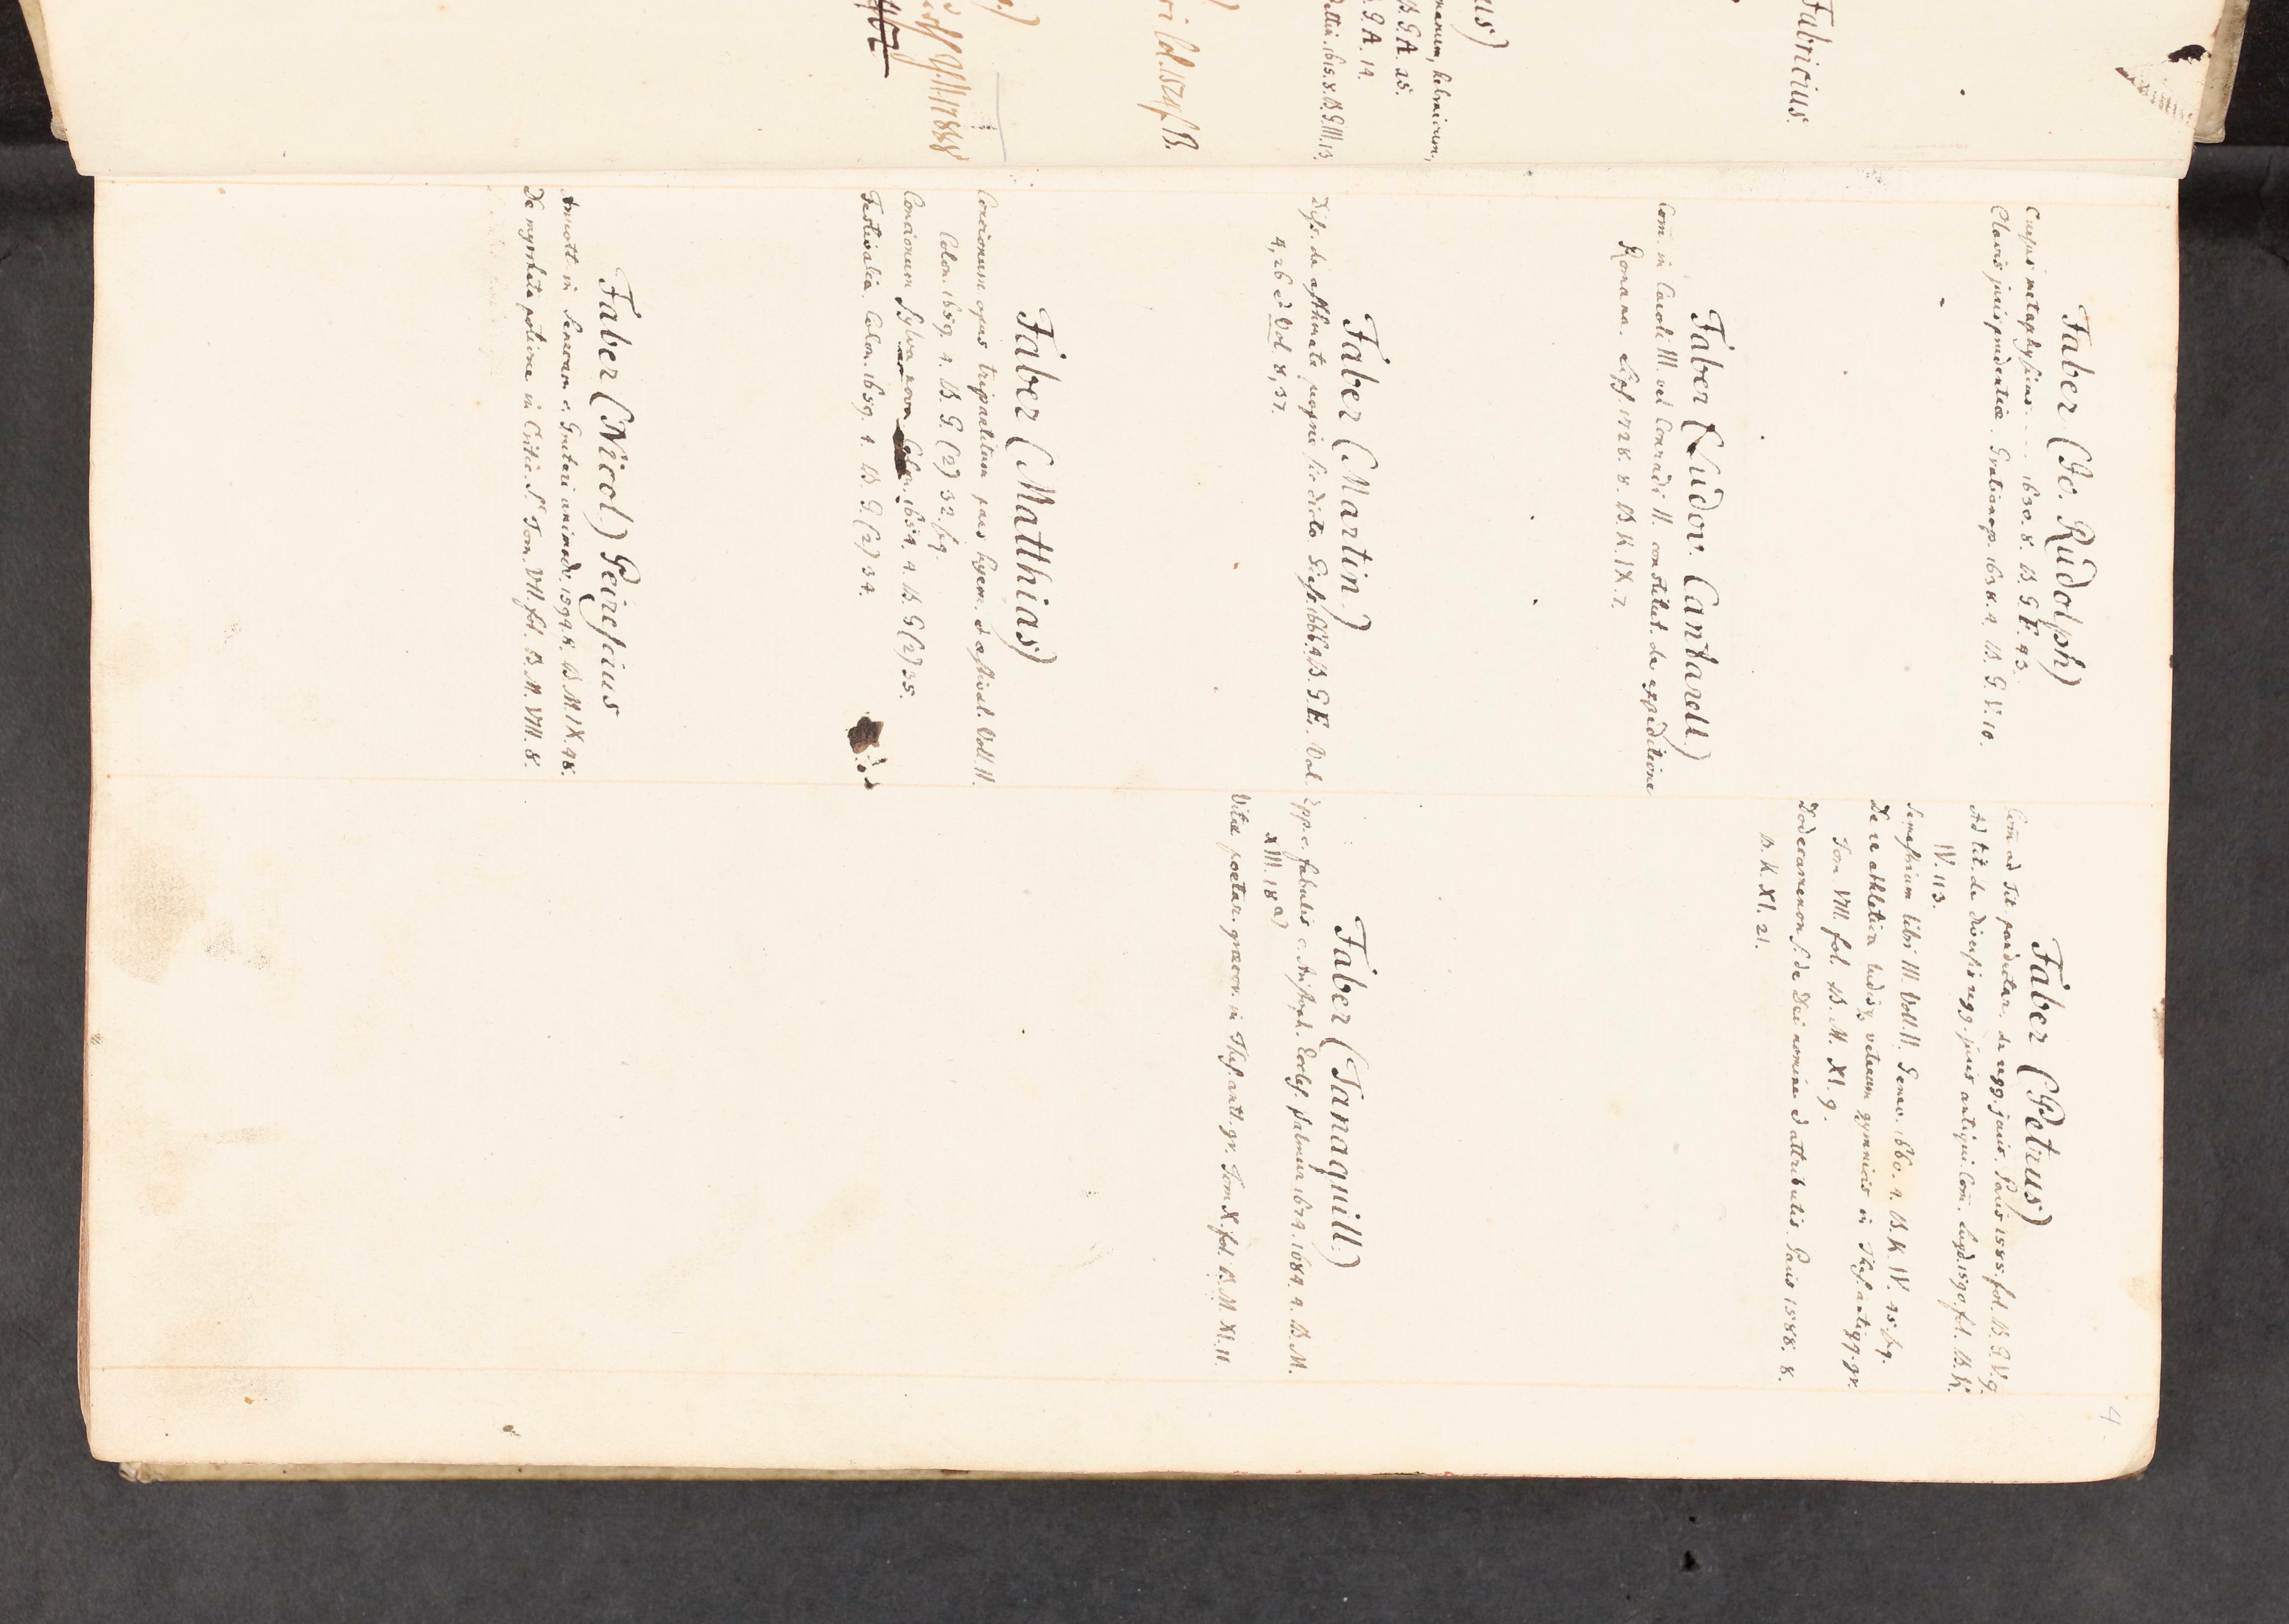 Faber (Jo. Rudolph)
Cursus metaphysicus. - - - 1630. 8. B. G. F. 93.
Clavis jurisprudentiae. Gratianop. 1638. 4. B. G. V. 10.
Faber (Ludov. Cantarell.)
Com. in Caroli III. vel Conradi II. constitut. de expeditione
Romana. Lips. 1728. 8. B. K. IX. 7.
Faber (Martin.)
Diss. de asthmate proprie sic dicto Giess. 1666. 4. B. G. E. Vol.
4, 26 & Vol. 8, 37.
Faber (Matthias)
Concionum opus tripartitum pars hyem. & aestival. Voll. II.
Colon. 1659. 4. B. G. (2) 32. sq.
Concionum Sylva nova Colon. 1654. 4. B. G (2) 35.
Festivalia. Colon. 1659. 4. B. G. (2) 34.
Faber (Nicol) Peirescius
Annott. in Senecam c. Gruteri animadv. 1594. 8. B. M. IX. 48.
De myrrhata potione in Critic. S. Tom. VII. fol. B. M. VIII. 8.
Faber (Petrus)
Com ad Tit. pandectar. de regg. juris. Paris 1585. fol. B. G. V. 9.
Ad tit. de diversis regg. juris antiqui Com. Lugd. 1590. fol. B. K.
IV. 113.
Semestrium libri III. Voll. II. Genev. 1660. 4. B. K. IV. 45. sq.
De re athletica ludisq. veterum gymnicis in Thes. antiqq. gr.
Tom VIII. fol. B. M. XI. 9.
Dodecamenon s. de Dei nomine & attributis. Paris 1588. 8.
B. K. XI. 21.
Faber (Tanaquill.)
Epp. c. fabulis c. Aristoph. Eccles. Salmur 1674. 1684. 4. B. M.
XIII. 18 a)
Vitae poetar. graecor. in Thes. antt. gr. Tom X. fol. B. M. XI. 11.
4
Fabricius.
B. G. A. 25.
G. A. 14.
1615. 8. B. G. III. 13.